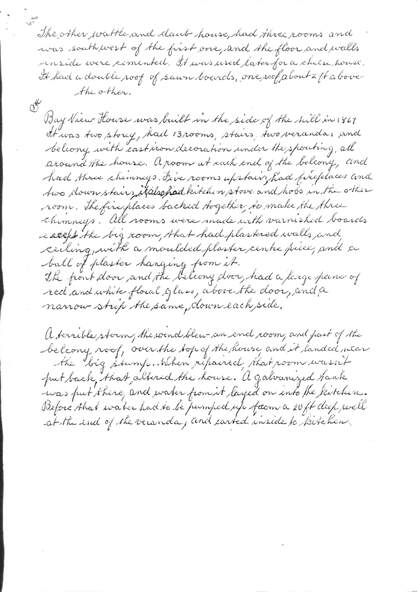 The other wattle and daub house, had three rooms and
was southwest of the first one, and the floor, and walls
inside were cemented. It was used later for a cheese house.
It had a double roof of sawn boards, one roof about 2ft above
the other.
Bay View House was built in the side of the hill in 1869
It was two story, had 13 rooms, stairs, two verandas, and
belcony, with cast iron decoration under the spouting, all
around the house. A room at each end of the belcony, and
had three chimneys. Five rooms upstairs, had fireplaces and
two down stairs, it also had kitchen, stove and hobs in the other
room. The fireplaces backed together, to make the three
chimneys. All rooms were made with varnished boards
except the big room, that had plastred walls, and
ceiling, with a moulded plaster centre piece, and a
ball of plaster hanging from it.
The front door and the belcony door, had a large pane of
red and white floral glass, above the door, and a
narrow strip the same, down each side.
A terrible storm, the wind blew an end room, and part of the
belcony roof, over the top of the house and it landed near
the big stump. When repaired, that room wasn't
put back, that altered the house. A galvanized tank
was put there, and water from it, layed on into the kitchen.
Before that water had to be pumped up from a 20ft deep well
at the end of the veranda, and carted inside to kitchen.